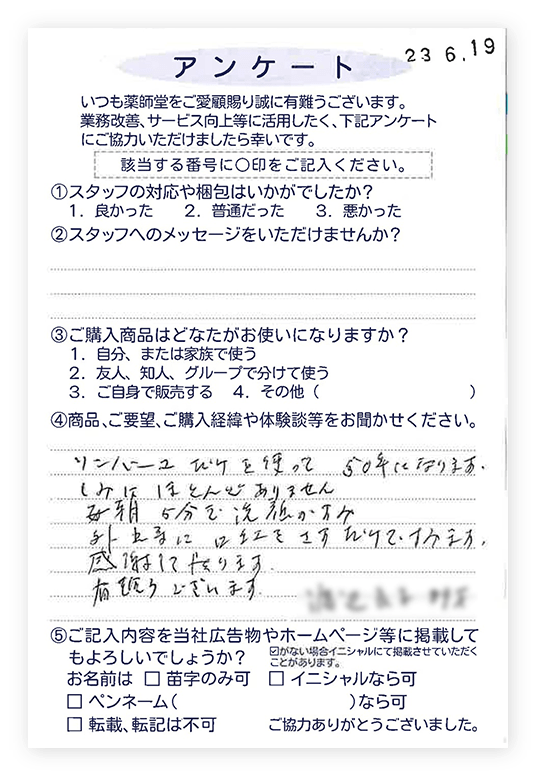 23 6.19
アンケート
いつも薬師堂をご愛顧賜り誠に有難うございます。
業務改善、サービス向上等に活用したく、下記アンケート
にご協力いただけましたら幸いです。
該当する番号に○印をご記入ください。
①スタッフの対応や梱包はいかがでしたか?
1. 良かった 2. 普通だった 3. 悪かった
②スタッフへのメッセージをいただけませんか?
③ご購入商品はどなたがお使いになりますか?
1. 自分、または家族で使う
2. 友人、知人、グループで分けて使う
3. ご自身で販売する 4. その他( )
④商品、ご要望、ご購入経緯や体験談等をお聞かせください。
ソンバーユだけを使って 50年になります。
しみは ほとんどありません
毎朝 5分で洗顔がすみ
外出時に 口紅をさすだけですみます。
感謝して居ります。
有難うございます。
⑤ご記入内容を当社広告物やホームページ等に掲載して
もよろしいでしょうか? ☑がない場合イニシャルにて掲載させていただく
ことがあります。
お名前は □ 苗字のみ可 □ イニシャルなら可
□ ペンネーム( )なら可
□ 転載、転記は不可 ご協力ありがとうございました。